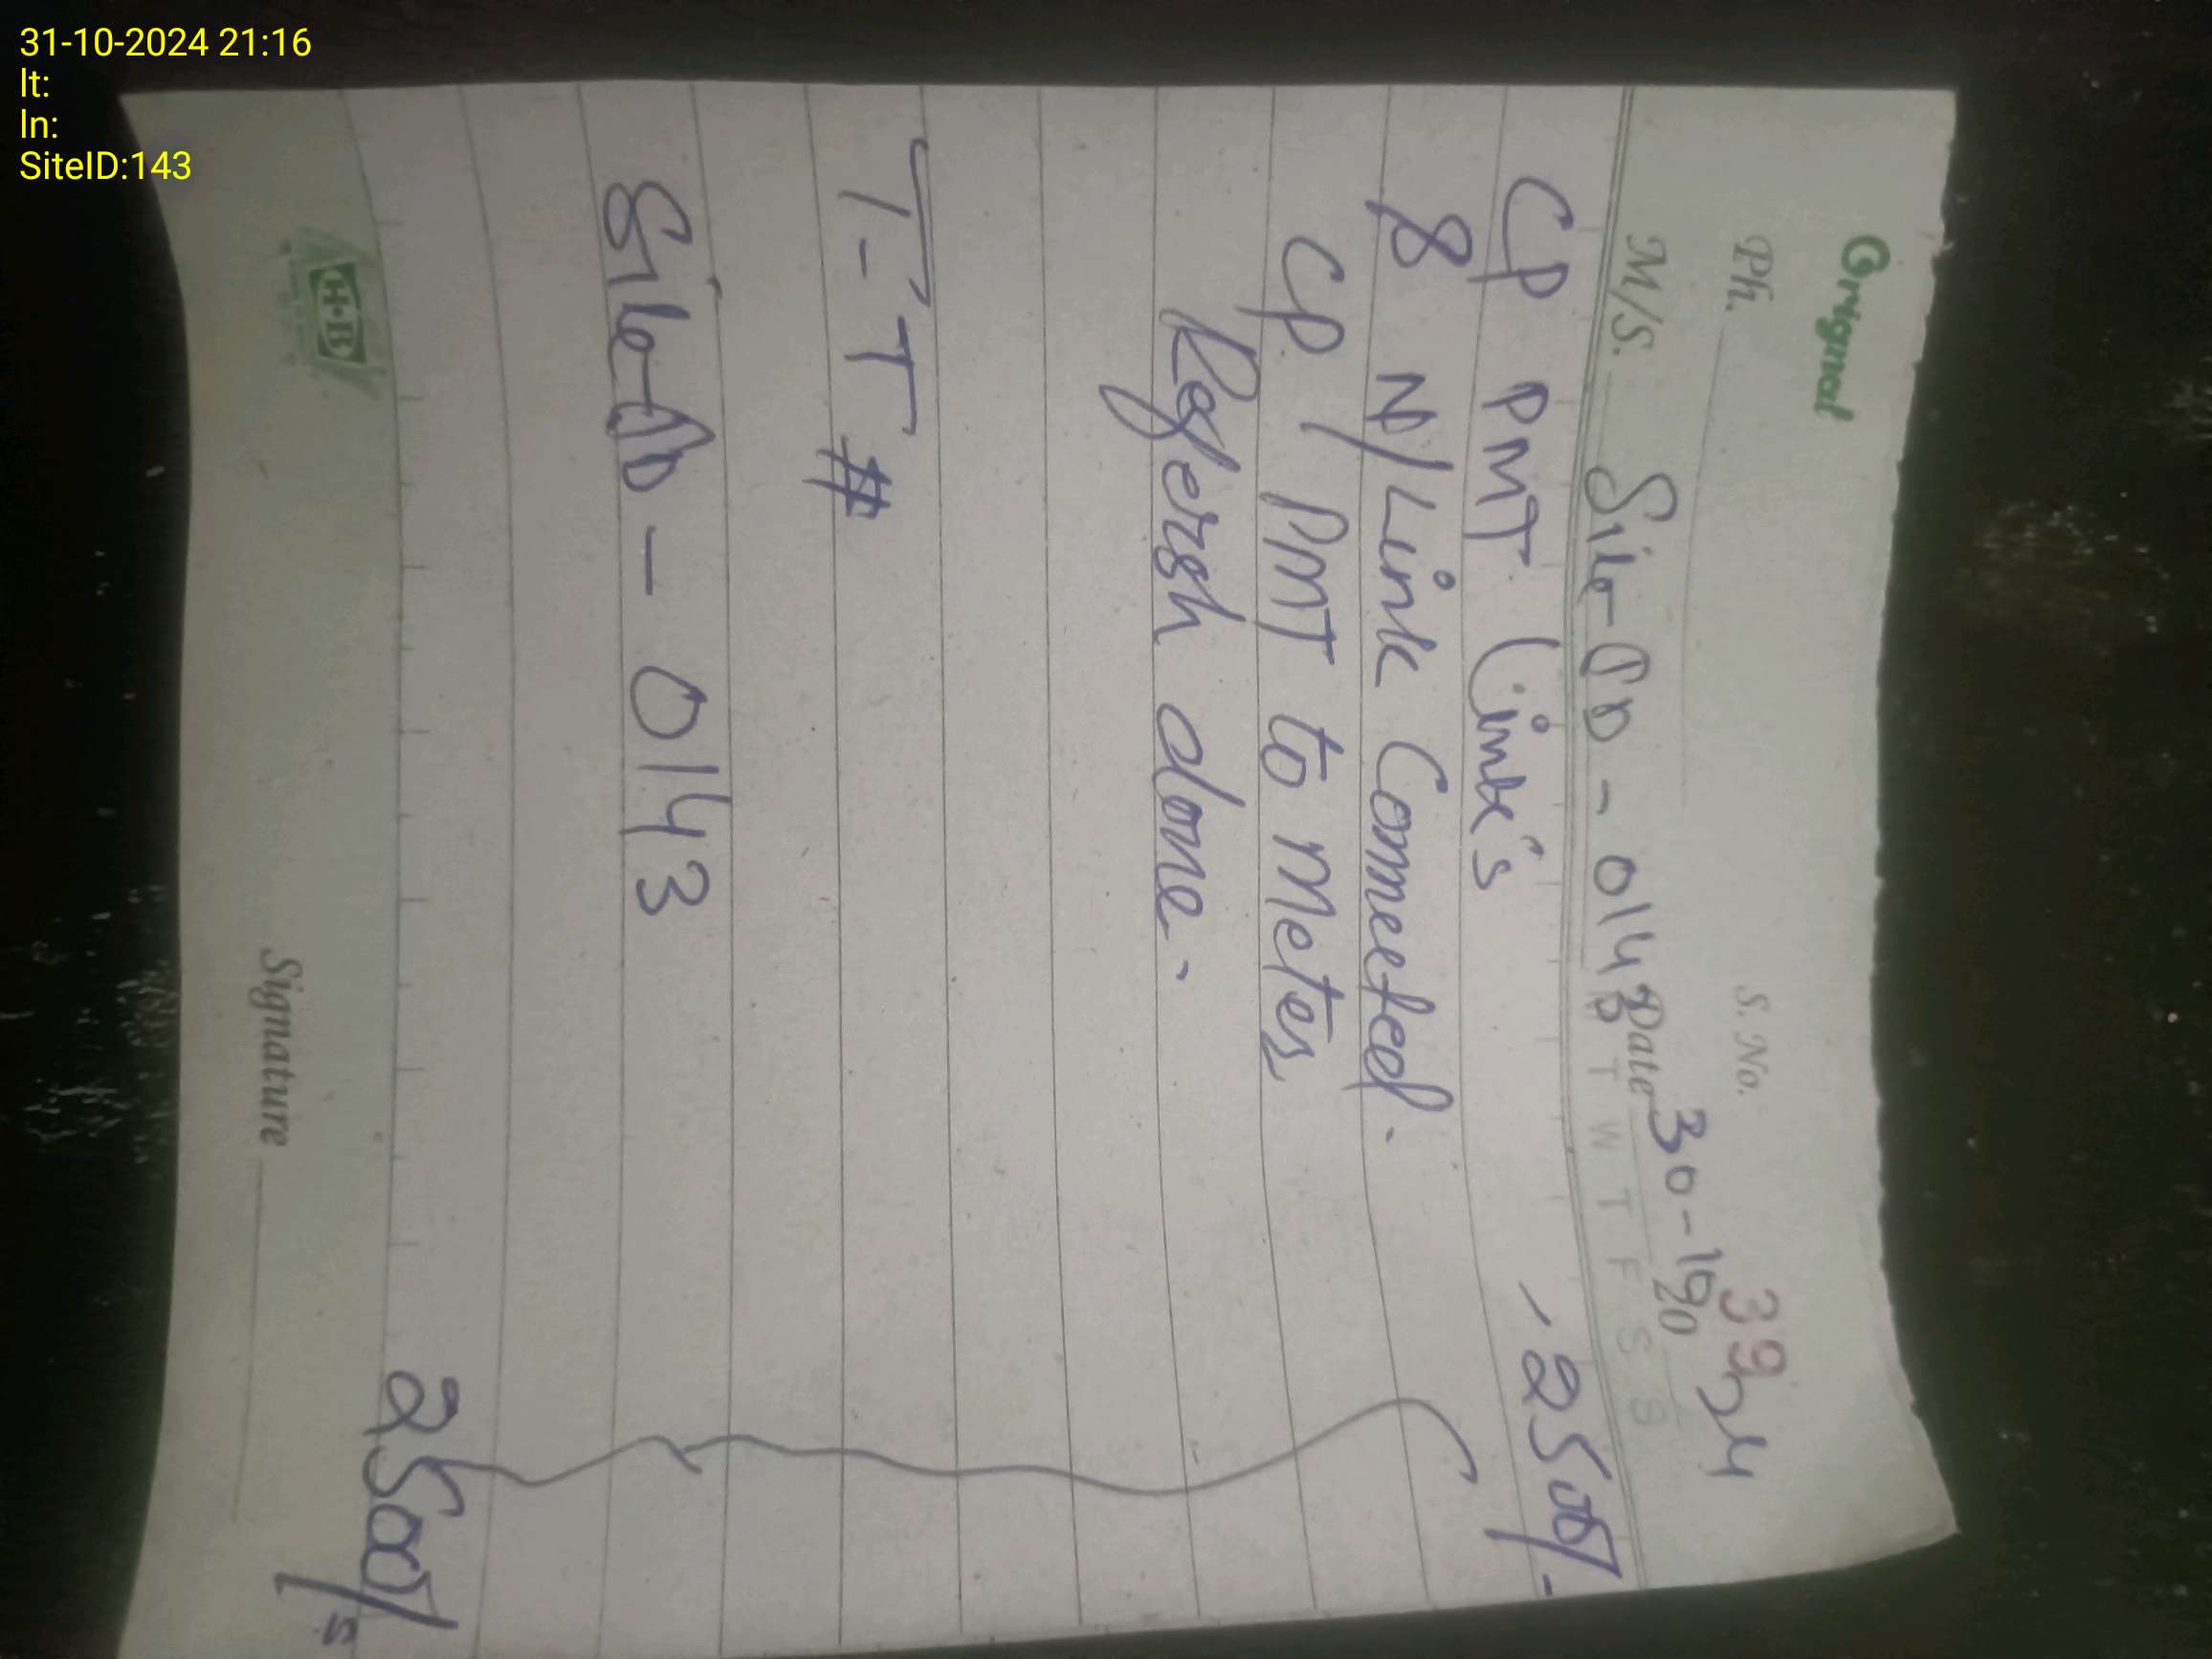 31-10-2024 21:16
lt:
ln:
SiteID:143
Original
Ph. S. No. 39
Date 30-10-2024
M/S. Site-ID - 0143
M T W T F S S
CP PMT Link's - 2500/-
& N/Link Connected.
CP PMT to Meter
Refersh done.
T-T #
Site-ID - 0143
2500/s
H-B
Signature